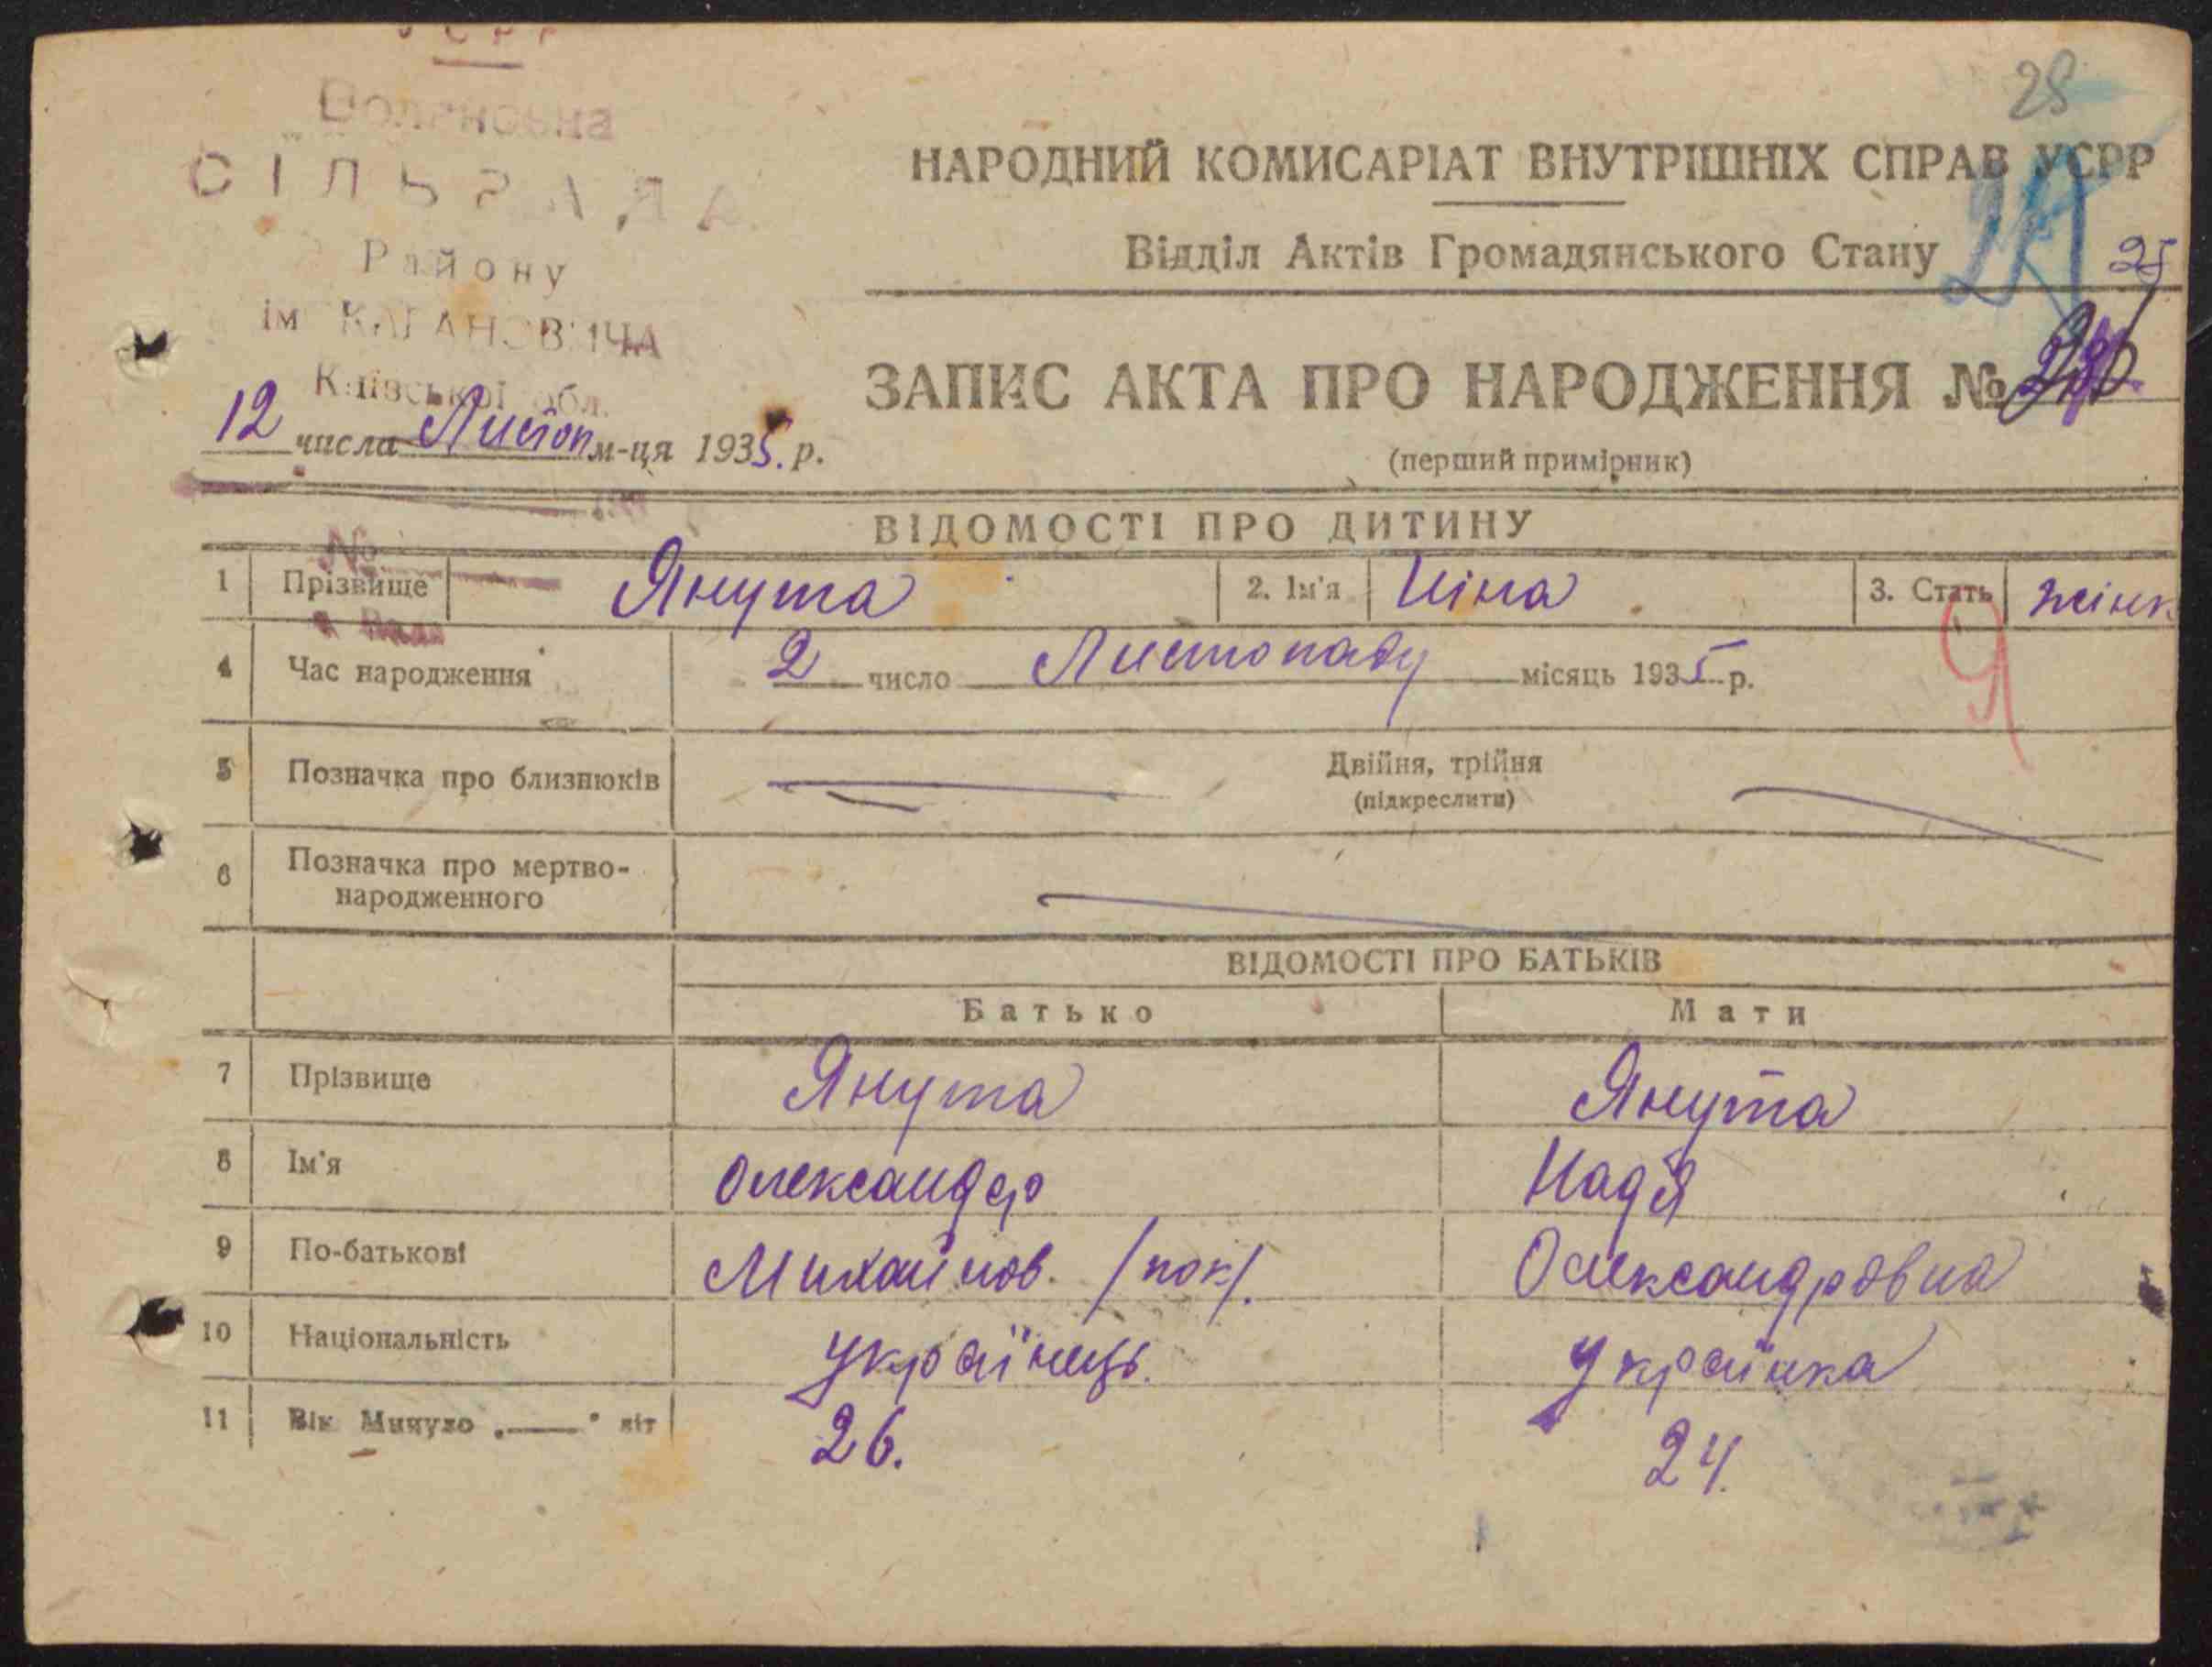 УСРР
СІЛЬРАДА
Району
ім КАГАНОВИЧА
Київської обл.
12 числа Листоп м-ця 1935. р.
28
НАРОДНИЙ КОМИСАРІАТ ВНУТРІШНІХ СПРАВ УСРР
Відділ Актів Громадянського Стану
25
ЗАПИС АКТА ПРО НАРОДЖЕННЯ №
(перший примірник)
№
ВІДОМОСТІ ПРО ДИТИНУ
1 Прізвище Янута 2. Ім'я Ніна 3. Стать жінк
4 Час народження 2 число Листопаду місяць 1935 р.
Я
5 Позначка про близнюків Двійня, трійня
(підкреслити)
6 Позначка про мертво-
народженного
ВІДОМОСТІ ПРО БАТЬКІВ
Батько Мати
7 Прізвище Янута Янута
8 Ім'я Олександр Надія
9 По-батькові Михайлов. /пок/. Олександровна
10 Національність українець. українка
11 Вік Минуло „—" літ 26. 24.